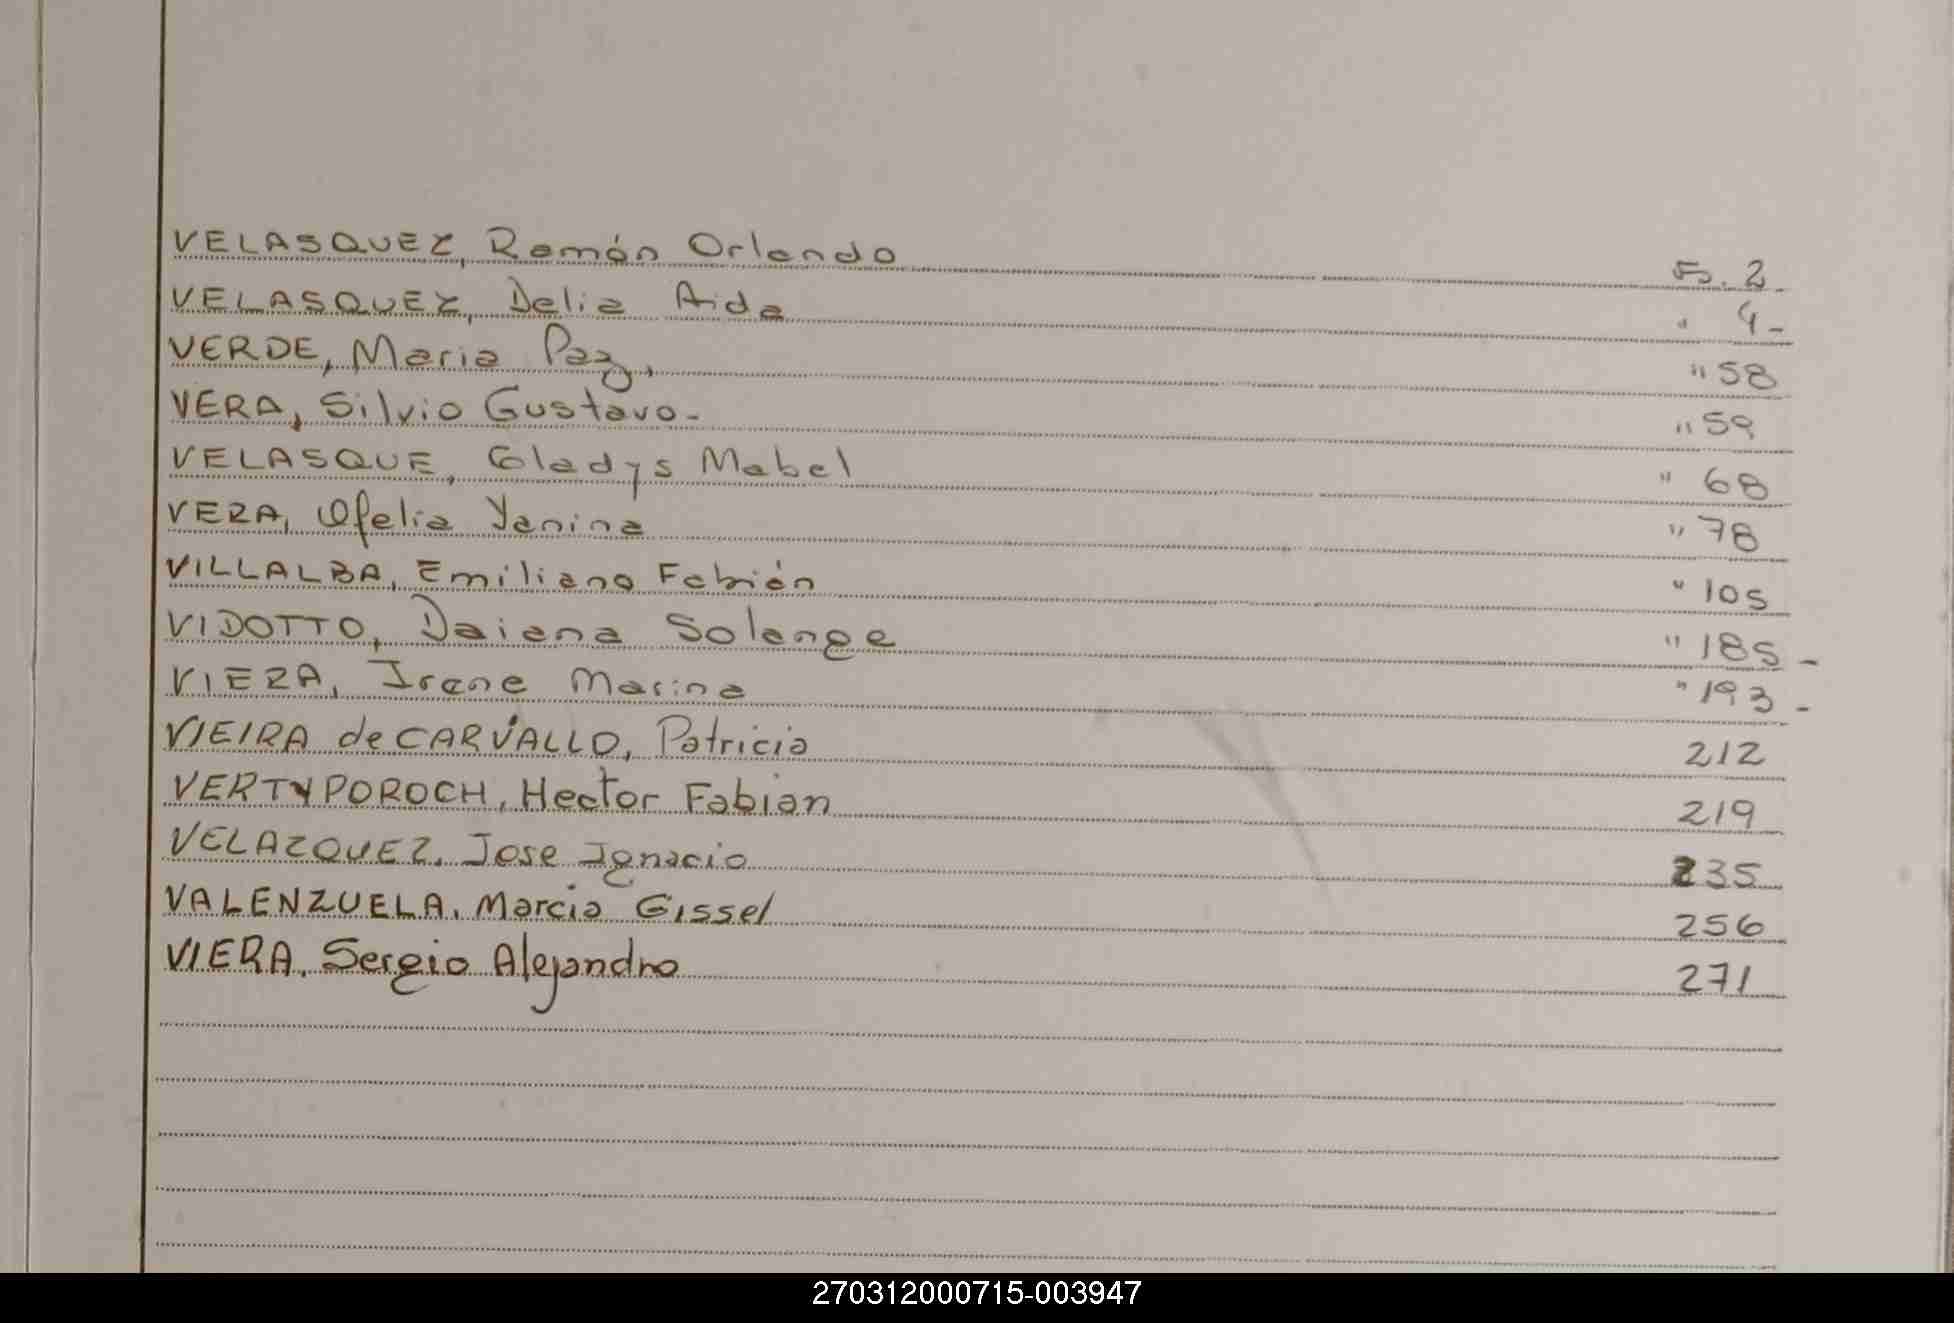 VELASQUEZ, Ramón Orlando F. 2-
VELASQUEZ, Delia Aida " 4-
VERDE, Maria Paz, " 58
VERA, Silvio Gustavo- " 59
VELASQUE, Gladys Mabel " 68
VERA, Ofelia Yanina " 78
VILLALBA, Emiliano Fabián " 105
VIDOTTO, Daiana Solange " 185-
VIERA, Irene Marina " 193-
VIEIRA de CARVALLO, Patricia 212
VERTYPOROCH, Hector Fabian 219
VELAZQUEZ, Jose Ignacio 235
VALENZUELA, Marcia Gissel 256
VIERA, Sergio Alejandro 271
270312000715-003947